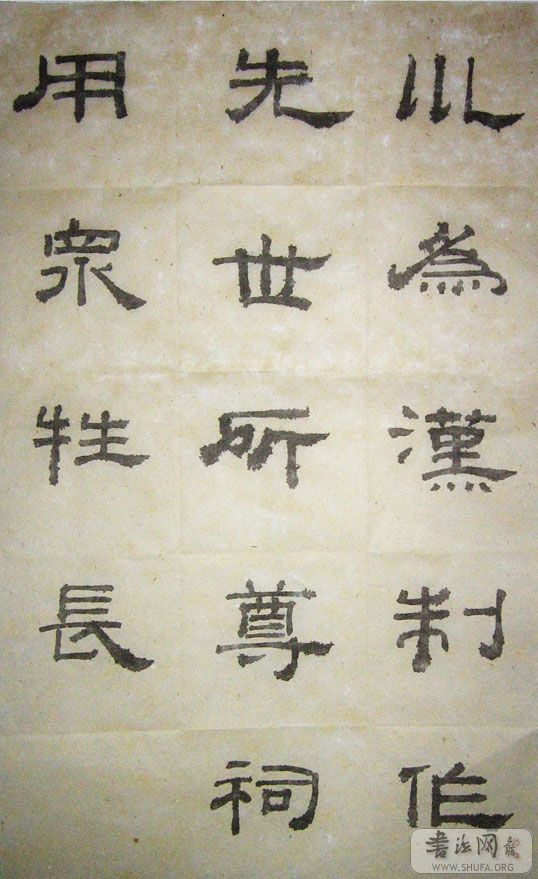 川為漢制作
先世所尊祠
用眾牲長
書法网
WWW.SHUFA.ORG